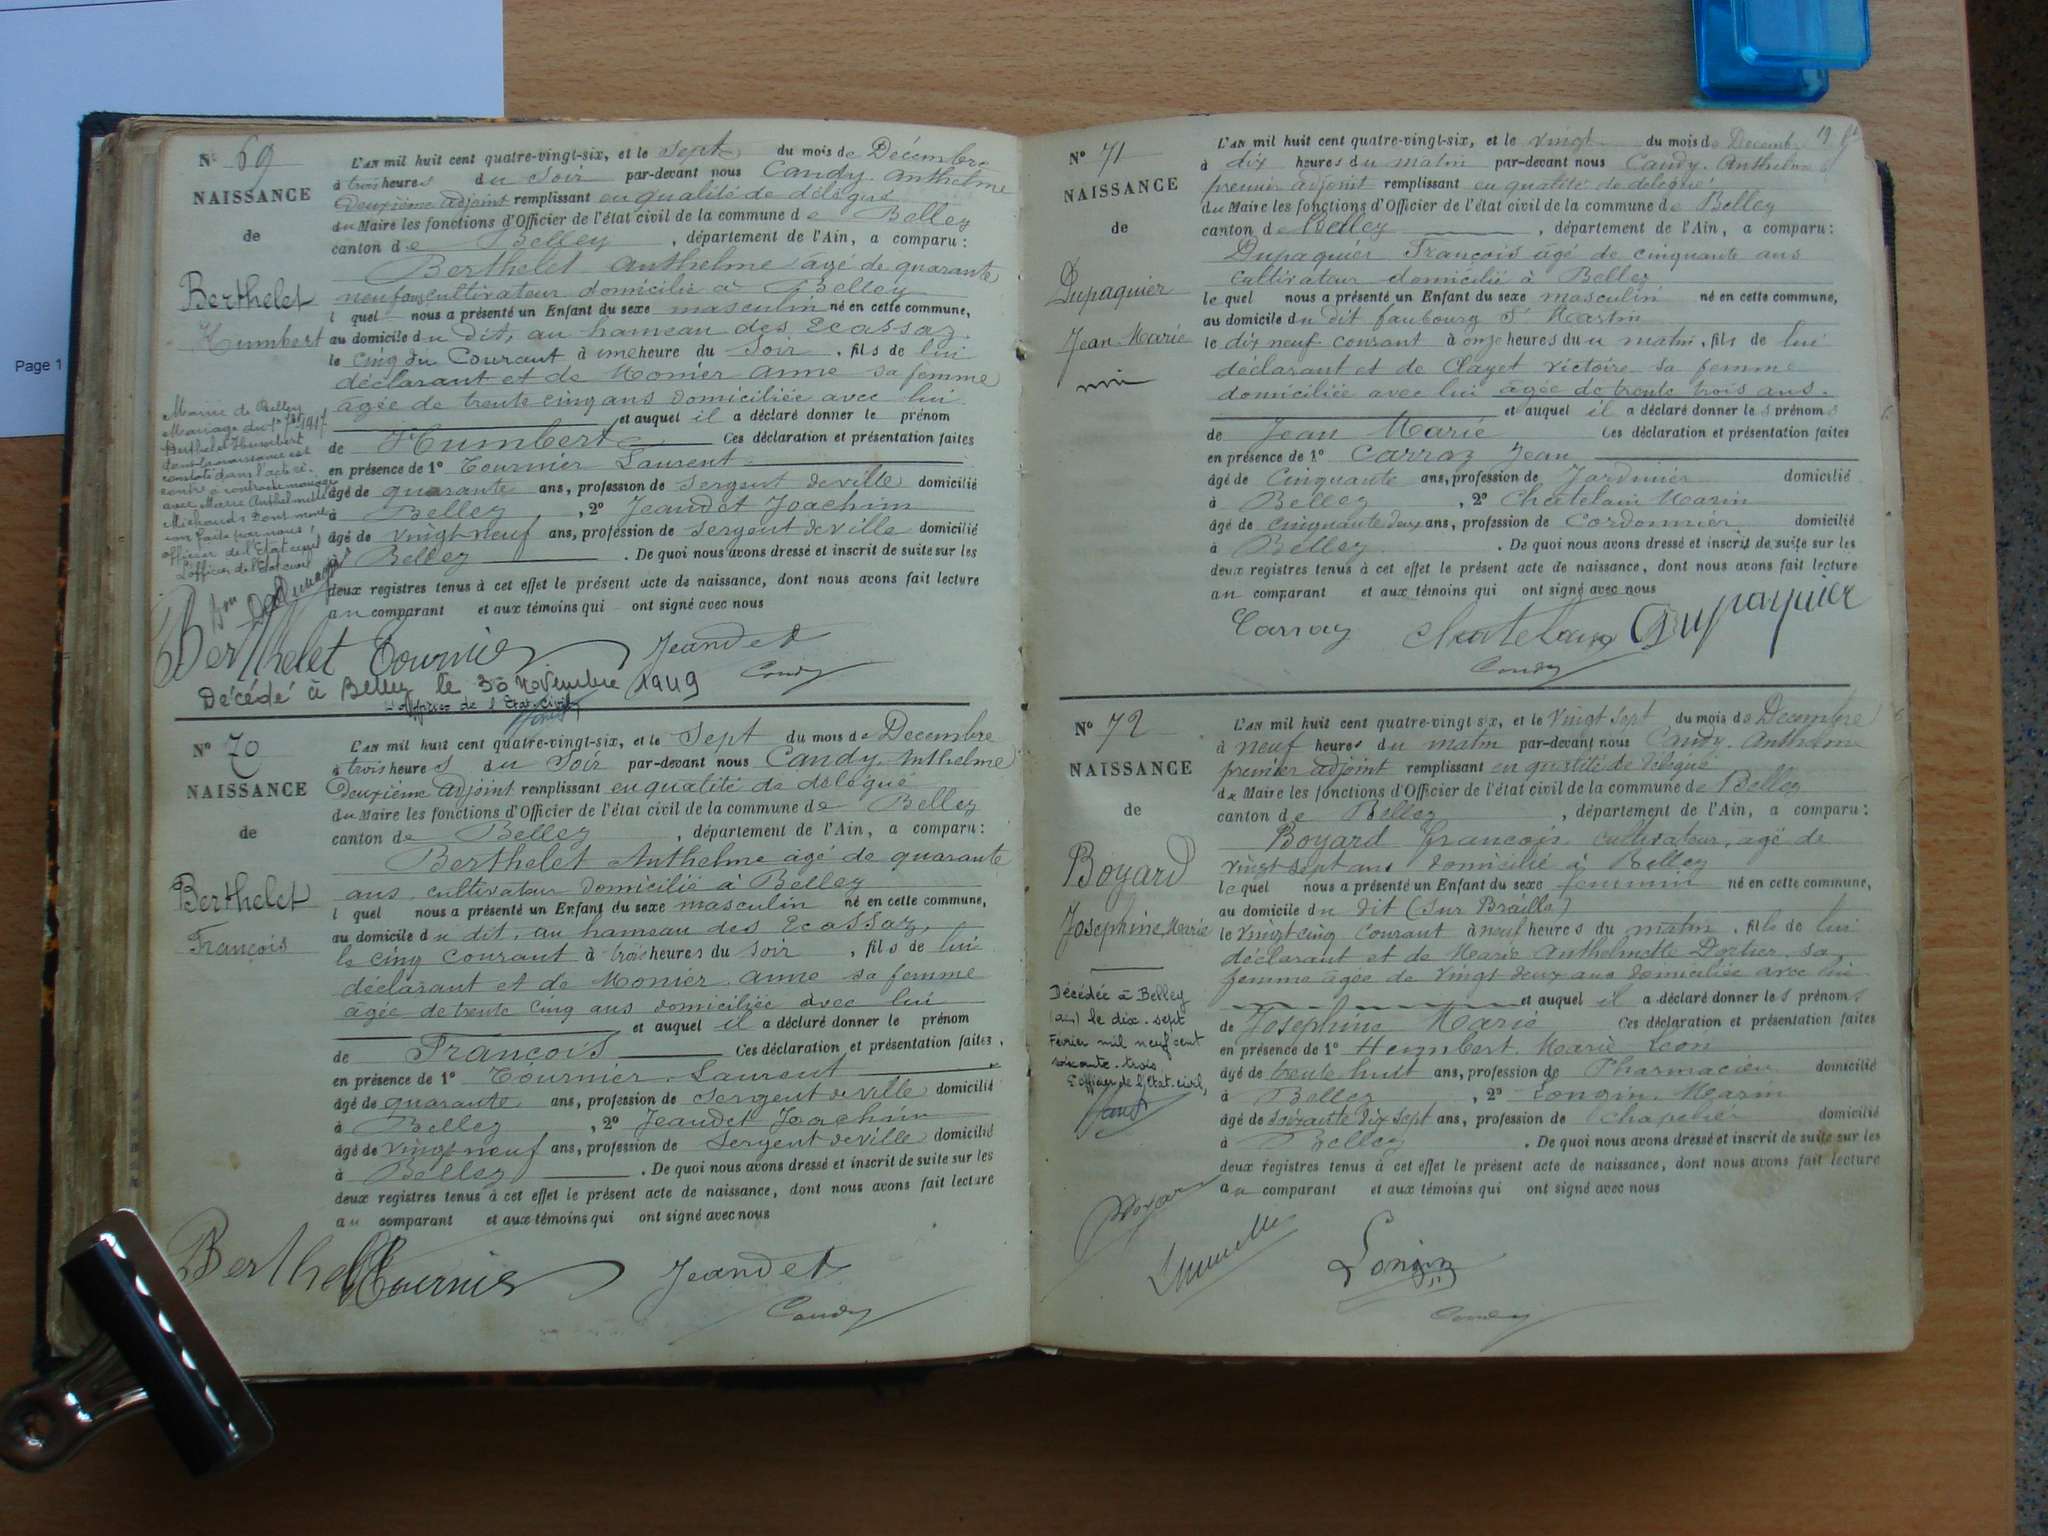 Page 1
N° 69
NAISSANCE
de
Berthelet
Humbert
L'AN mil huit cent quatre-vingt-six, et le sept du mois de Décembre
à trois heures du Soir par-devant nous Candy Anthelme
Deuxième adjoint remplissant en qualité de délégué
du Maire les fonctions d'Officier de l'état civil de la commune de Belley
canton de Belley, département de l'Ain, a comparu:
Berthelet Anthelme âgé de quarante
neuf ans cultivateur domicilié à Belley
l quel nous a présenté un Enfant du sexe masculin né en cette commune,
au domicile du dit, au hameau des Ecassaz
le cinq du Courant à une heure du Soir, fils de lui
déclarant et de Monier Anne sa femme
âgée de trente cinq ans domiciliée avec lui
et auquel il a déclaré donner le prénom
de Humbert Ces déclaration et présentation faites
en présence de 1° Tournier Laurent
âgé de quarante ans, profession de Sergent de ville domicilié
à Belley, 2° Jeandet Joachim
âgé de vingt neuf ans, profession de Sergent de ville domicilié
à Belley. De quoi nous avons dressé et inscrit de suite sur les
deux registres tenus à cet effet le présent acte de naissance, dont nous avons fait lecture
au comparant et aux témoins qui ont signé avec nous
Mairie de Belley
Mariage du 1917
Berthelet Humbert
dont la naissance est
constatée dans l'acte ci-
contre a contracté mariage
avec Marie Anthelmette
Michaud Dont men-
tion faite par nous,
officier de l'Etat civil
L'officier de l'état civil
Berthelet Tournier Jeandet
Candy
Décédé à Belley le 30 novembre 1949
L'officier de l'Etat-Civil,
N° 70
NAISSANCE
de
Berthelet
François
L'AN mil huit cent quatre-vingt-six, et le Sept du mois de Decembre
à trois heures du Soir par-devant nous Candy Anthelme
Deuxième adjoint remplissant en qualité de délégué
du Maire les fonctions d'Officier de l'état civil de la commune de Belley
canton de Belley, département de l'Ain, a comparu:
Berthelet Anthelme âgé de quarante
ans, cultivateur domicilié à Belley
l quel nous a présenté un Enfant du sexe masculin né en cette commune,
au domicile du dit, au hameau des Ecassaz,
le cinq courant à trois heures du Soir, fils de lui
déclarant et de Monier Anne sa femme
âgée de trente cinq ans domiciliée avec lui
et auquel il a déclaré donner le prénom
de François Ces déclaration et présentation faites,
en présence de 1° Tournier Laurent
âgé de quarante ans, profession de Sergent de ville domicilié
à Belley, 2° Jeandet Joachim
âgé de vingt neuf ans, profession de Sergent de ville domicilié
à Belley. De quoi nous avons dressé et inscrit de suite sur les
deux registres tenus à cet effet le présent acte de naissance, dont nous avons fait lecture
au comparant et aux témoins qui ont signé avec nous
Berthelet Tournier Jeandet
Candy
N° 71
NAISSANCE
de
Dupaquier
Jean Marie
L'AN mil huit cent quatre-vingt-six, et le vingt du mois de Decembre
à dix heures du matin par-devant nous Candy Anthelme
premier adjoint remplissant en qualité de délégué
du Maire les fonctions d'Officier de l'état civil de la commune de Belley
canton de Belley, département de l'Ain, a comparu:
Dupaquier François âgé de cinquante ans
cultivateur domicilié à Belley
lequel nous a présenté un Enfant du sexe masculin né en cette commune,
au domicile du dit faubourg St Martin
le dix neuf courant à onze heures du matin, fils de lui
déclarant et de Clayet Victoire sa femme
domiciliée avec lui âgée de trente trois ans.
et auquel il a déclaré donner les prénoms
de Jean Marie Ces déclaration et présentation faites
en présence de 1° Carraz Jean
âgé de Cinquante ans, profession de Jardinier domicilié
à Belley, 2° Chatelain Marin
âgé de cinquante deux ans, profession de Cordonnier domicilié
à Belley. De quoi nous avons dressé et inscrit de suite sur les
deux registres tenus à cet effet le présent acte de naissance, dont nous avons fait lecture
au comparant et aux témoins qui ont signé avec nous
Carraz Chatelain Dupaquier
Candy
N° 72
NAISSANCE
de
Boyard
Joséphine Marie
L'AN mil huit cent quatre-vingt six, et le Vingt Sept du mois de Decembre
à neuf heures du matin par-devant nous Candy Anthelme
premier adjoint remplissant en qualité de délégué
du Maire les fonctions d'Officier de l'état civil de la commune de Belley
canton de Belley, département de l'Ain, a comparu:
Boyard François, cultivateur, âgé de
vingt sept ans domicilié à Belley
lequel nous a présenté un Enfant du sexe feminin né en cette commune,
au domicile du dit (Sur Brailla)
le vingt cinq courant à neuf heures du matin, fille de lui
déclarant et de Marie Anthelmette Dortier sa
femme âgée de vingt deux ans domiciliée avec lui
et auquel il a déclaré donner les prénoms
de Joséphine Marie Ces déclaration et présentation faites
en présence de 1° Marie Léon
âgé de trente huit ans, profession de Pharmacien domicilié
à Belley, 2° Longin Marin
âgé de soixante dix sept ans, profession de Chapelier domicilié
à Belley. De quoi nous avons dressé et inscrit de suite sur les
deux registres tenus à cet effet le présent acte de naissance, dont nous avons fait lecture
au comparant et aux témoins qui ont signé avec nous
Décédée à Belley
(ain) le dix-sept
Février mil neuf cent
soixante-trois
L'officier de l'Etat-civil,
Boyard
Longin
Candy